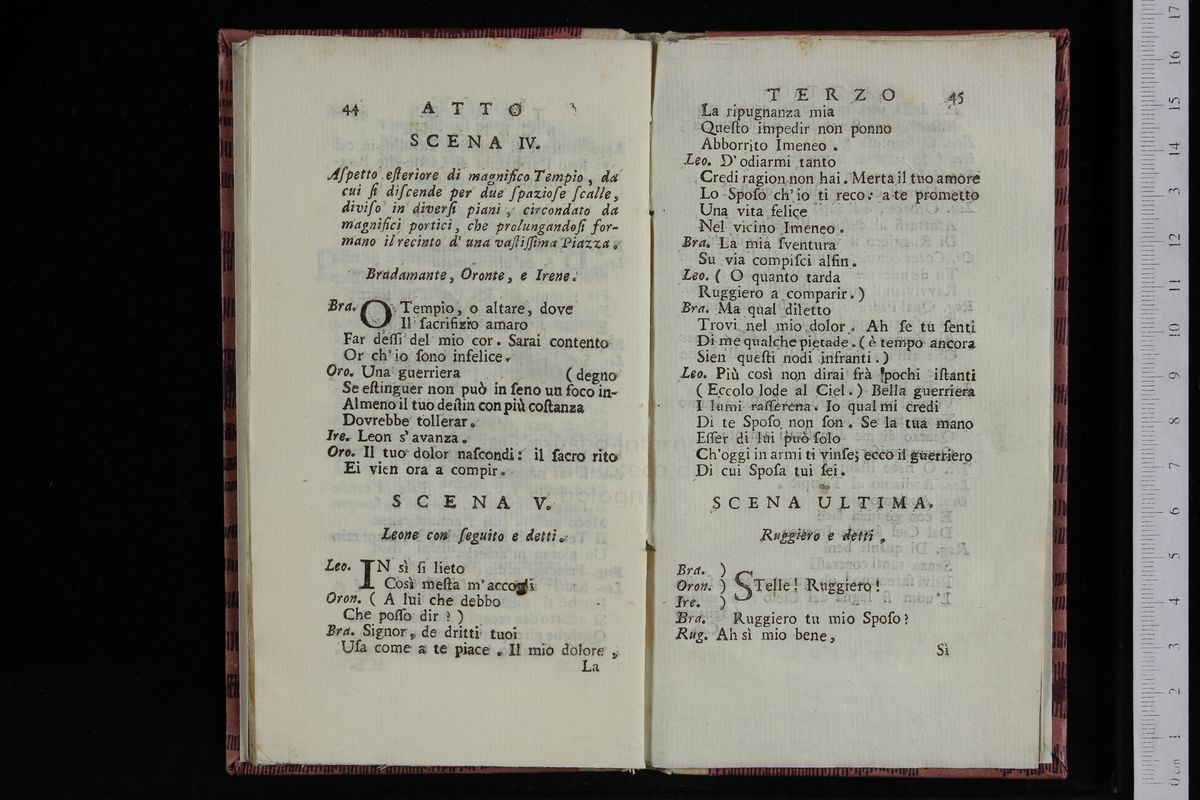 44 ATTO
SCENA IV.
Aſpetto eſteriore di magnifico Tempio, da
cui ſi diſcende per due ſpazioſe ſcalle,
diviſo in diverſi piani, circondato da
magnifici portici, che prolungandoſi for-
mano il recinto d'una vaſtiſſima Piazza.
Bradamante, Oronte, e Irene.
Bra. O Tempio, o altare, dove
Il ſacrifizio amaro
Far deſſi del mio cor. Sarai contento
Or ch'io ſono infelice.
Oro. Una guerriera (degno
Se eſtinguer non può in ſeno un foco in-
Almeno il tuo deſtin con più coſtanza
Dovrebbe tollerar.
Ire. Leon s'avanza.
Oro. Il tuo dolor naſcondi: il ſacro rito
Ei vien ora a compir.
SCENA V.
Leone con ſeguito e detti.
Leo. IN sì ſi lieto
Così meſta m'accogli
Oron. ( A lui che debbo
Che poſſo dir ? )
Bra. Signor, de dritti tuoi
Uſa come a te piace. Il mio dolore,
La
TERZO 45
La ripugnanza mia
Queſto impedir non ponno
Abborrito Imeneo.
Leo. D'odiarmi tanto
Credi ragion non hai. Merta il tuo amore
Lo Spoſo ch'io ti reco: a te prometto
Una vita felice
Nel vicino Imeneo.
Bra. La mia ſventura
Su via compiſci alfin.
Leo. ( O quanto tarda
Ruggiero a comparir.)
Bra. Ma qual diletto
Trovi nel mio dolor. Ah ſe tu ſenti
Di me qualche pietade. (è tempo ancora
Sien queſti nodi infranti.)
Leo. Più così non dirai frà pochi iſtanti
( Eccolo lode al Ciel.) Bella guerriera
I lumi raſſerena. Io qual mi credi
Di te Spoſo non ſon. Se la tua mano
Eſſer di lui può ſolo
Ch'oggi in armi ti vinſe; ecco il guerriero
Di cui Spoſa tui ſei.
SCENA ULTIMA.
Ruggiero e detti.
Bra. )
Oron. ) STelle! Ruggiero!
Ire. )
Bra. Ruggiero tu mio Spoſo?
Rug. Ah sì mio bene,
Sì